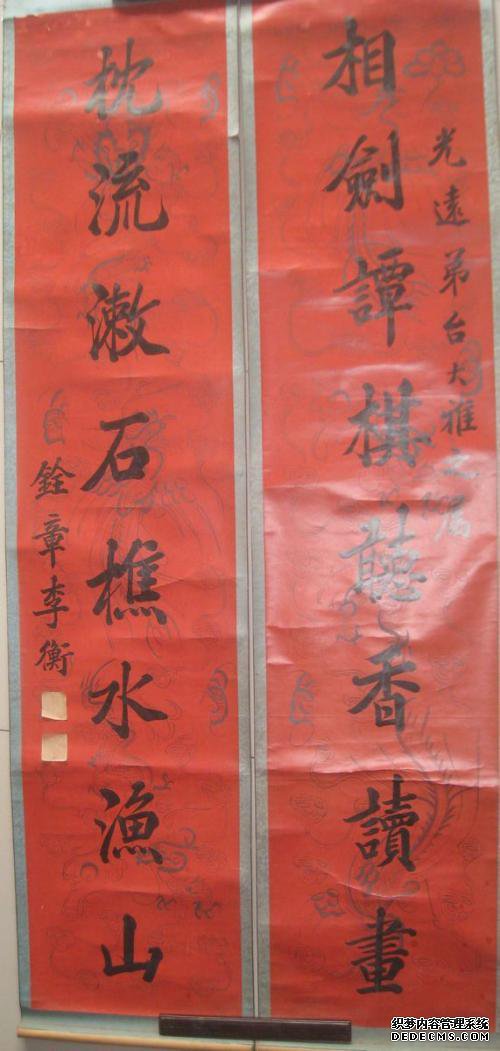 光遠弟台大雅之屬
相劍譚棋聽香讀畫
枕流漱石樵水漁山
銓章李衡
织梦内容管理系统
DEDECMS.COM